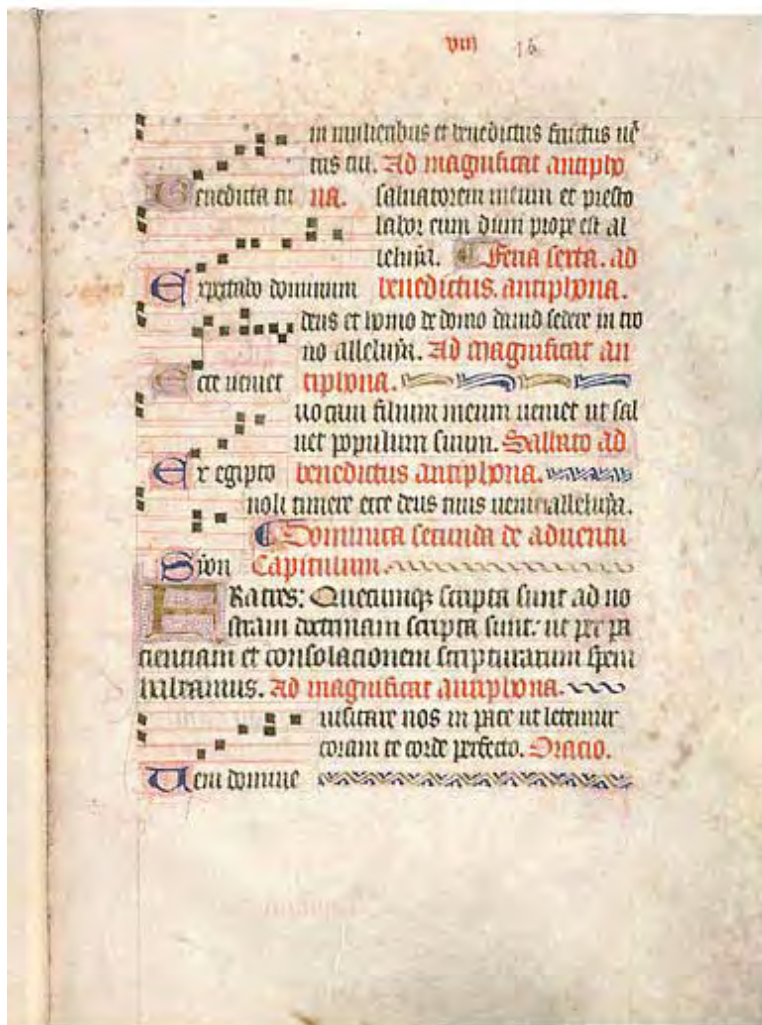 viii 16
in mulieribus et benedictus fructus uē
tris tui. Ad magnificat antipho
Benedicta tu na. saluatorem meum et presto
labor eum dum prope est al
leluya. Feria sexta. ad
Expectabo dominum benedictus. antiphona.
deus et homo de domo dauid sedere in tro
no alleluya. Ad magnificat an
Ecce ueniet tiphona.
uocaui filium meum ueniet ut sal
uet populum suum. Sabbato ad
Ex egipto benedictus antiphona.
noli timere ecce deus tuus ueniet alleluya.
Dominica secunda de aduentu
Syon Capitulum.
FRatres: Quecunqꝫ scripta sunt ad no
stram doctrinam scripta sunt: ut per pa
cienciam et consolacionem scripturarum spem
habeamus. Ad magnificat antiphona.
uisitare nos in pace ut letemur
coram te corde perfecto. Oracio.
Ueni domine